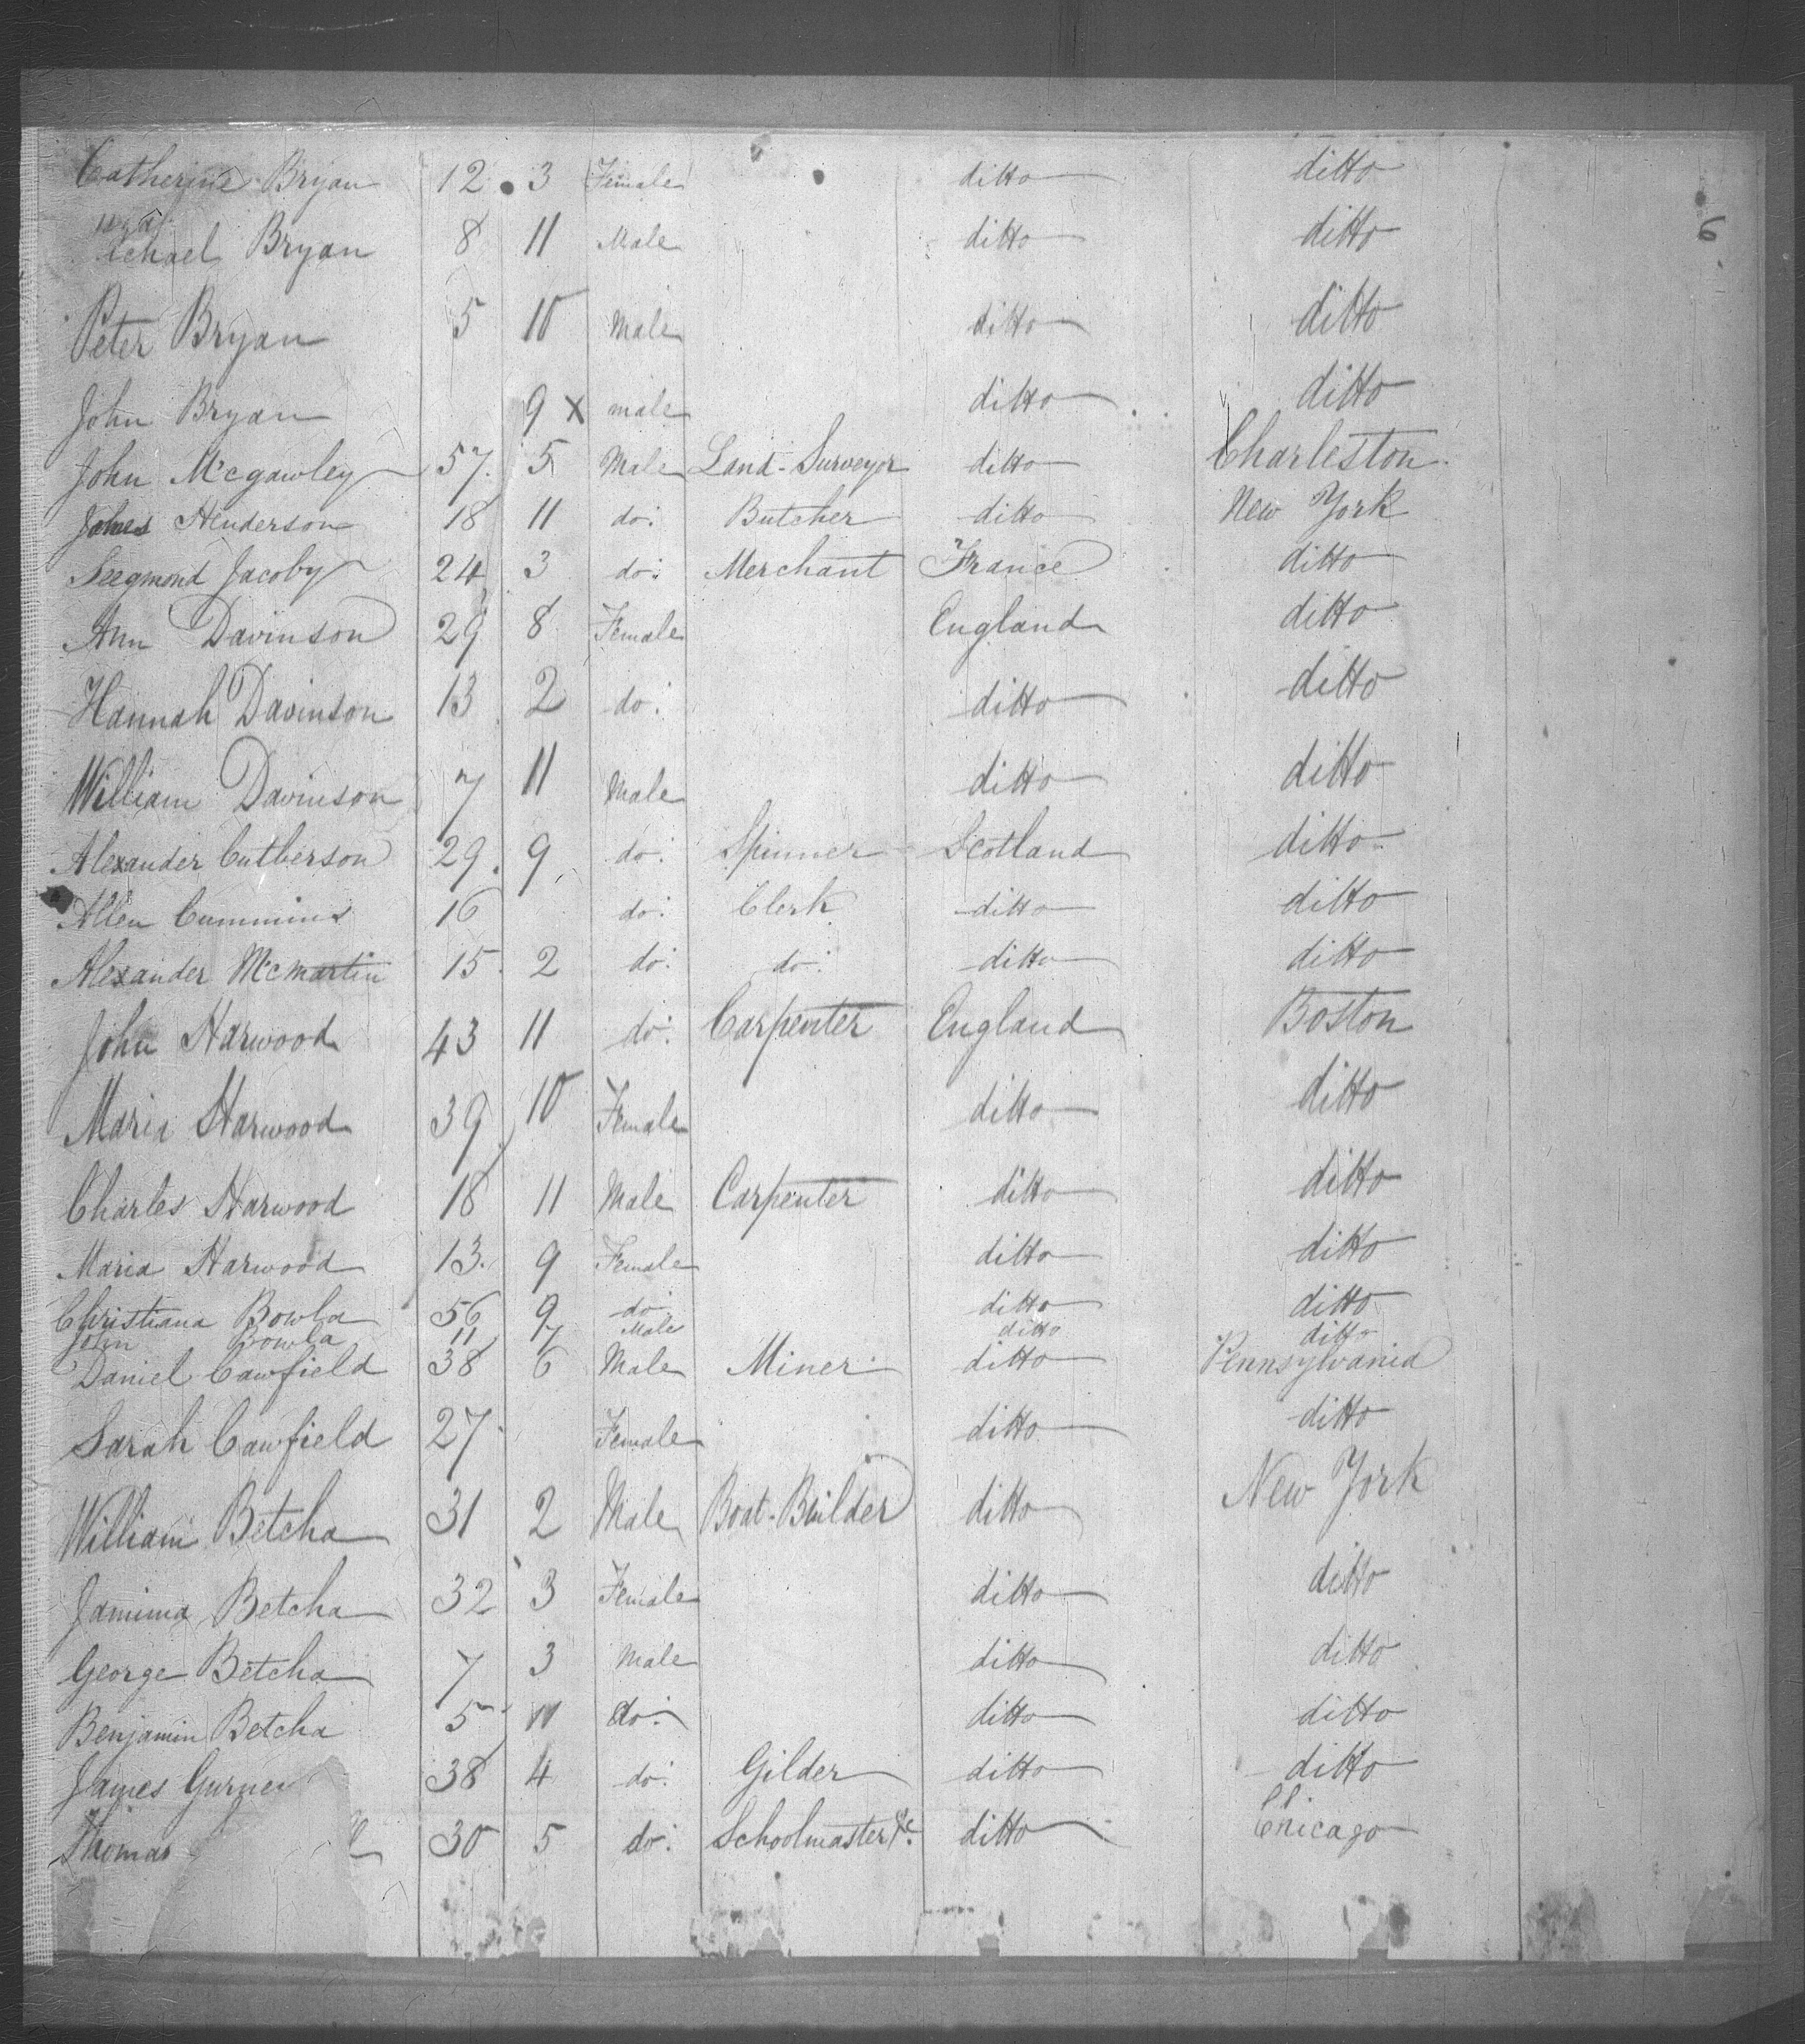 Catherine Bryan 12 3 Female ditto ditto
Bryan 8 11 Male ditto ditto 6
Peter Bryan 5 10 Male ditto ditto
John Bryan 9 x male ditto ditto
John McGawley 57 5 Male Land-Surveyor ditto Charleston
Henderson 18 11 do: Butcher ditto New York
Seegmond Jacoby 24 3 do: Merchant France ditto
Ann Davinson 29 8 Female England ditto
Hannah Davinson 13 2 do: ditto ditto
William Davinson 7 11 Male ditto ditto
Alexander Cutberson 29 9 do: Spinner Scotland ditto
Allen Cummins 16 do: Clerk ditto ditto
Alexander McMartin 15 2 do: do: ditto ditto
John Harwood 43 11 do: Carpenter England Boston
Maria Harwood 39 10 Female ditto ditto
Charles Harwood 18 11 Male Carpenter ditto ditto
Maria Harwood 13 9 Female ditto ditto
Christiana Bowla 56 9 do: ditto ditto
John Bowla 11 7 Male ditto ditto
Daniel Cawfield 38 6 Male Miner ditto Pennsylvania
Sarah Cawfield 27 Female ditto ditto
William Betcha 31 2 Male Boat-Builder ditto New York
Jamima Betcha 32 3 Female ditto ditto
George Betcha 7 3 Male ditto ditto
Benjamin Betcha 5 11 do: ditto ditto
James 38 4 do: Gilder ditto ditto
Thomas 30 5 do: Schoolmaster &c. ditto Chicago